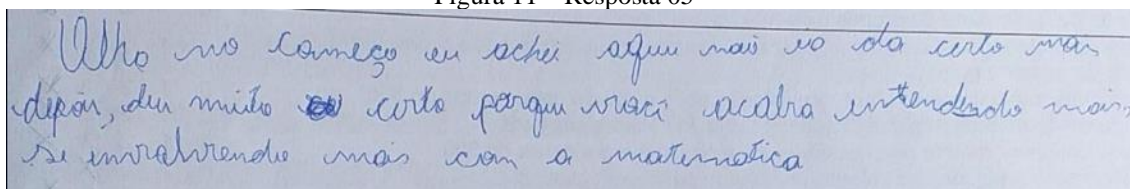 Figura 11 – Resposta 03
Olho no começo eu achei aquu nao io da certo mas
depois, deu muito certo porque você acaba entendendo mais,
se envolvrendo mais com a matematica